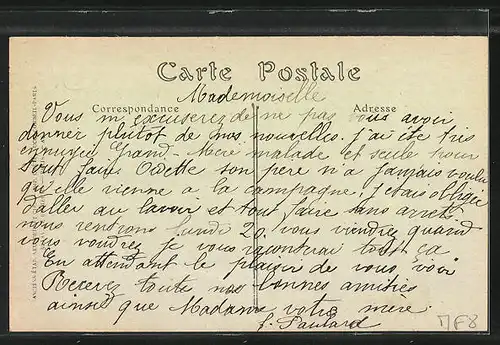 Carte Postale
Correspondance
Adresse
Mademoiselle
Vous m'excuserez de ne pas vous avoir
donner plutôt de nos nouvelles. j'ai été très
ennuyée Grand-Mère malade et seule pour
tout faire Odette son père n'a jamais voulu
qu'elle vienne a la campagne. j'etais obligée
d'aller au lavoir et tout faire sans arret
nous rentrons lundi 20. vous viendrez quand
vous voudrez je vous raconterai tout ça
En attendant le plaisir de vous voir
Recevez toute nos bonnes amitiés
ainsie que Madame votre mère.